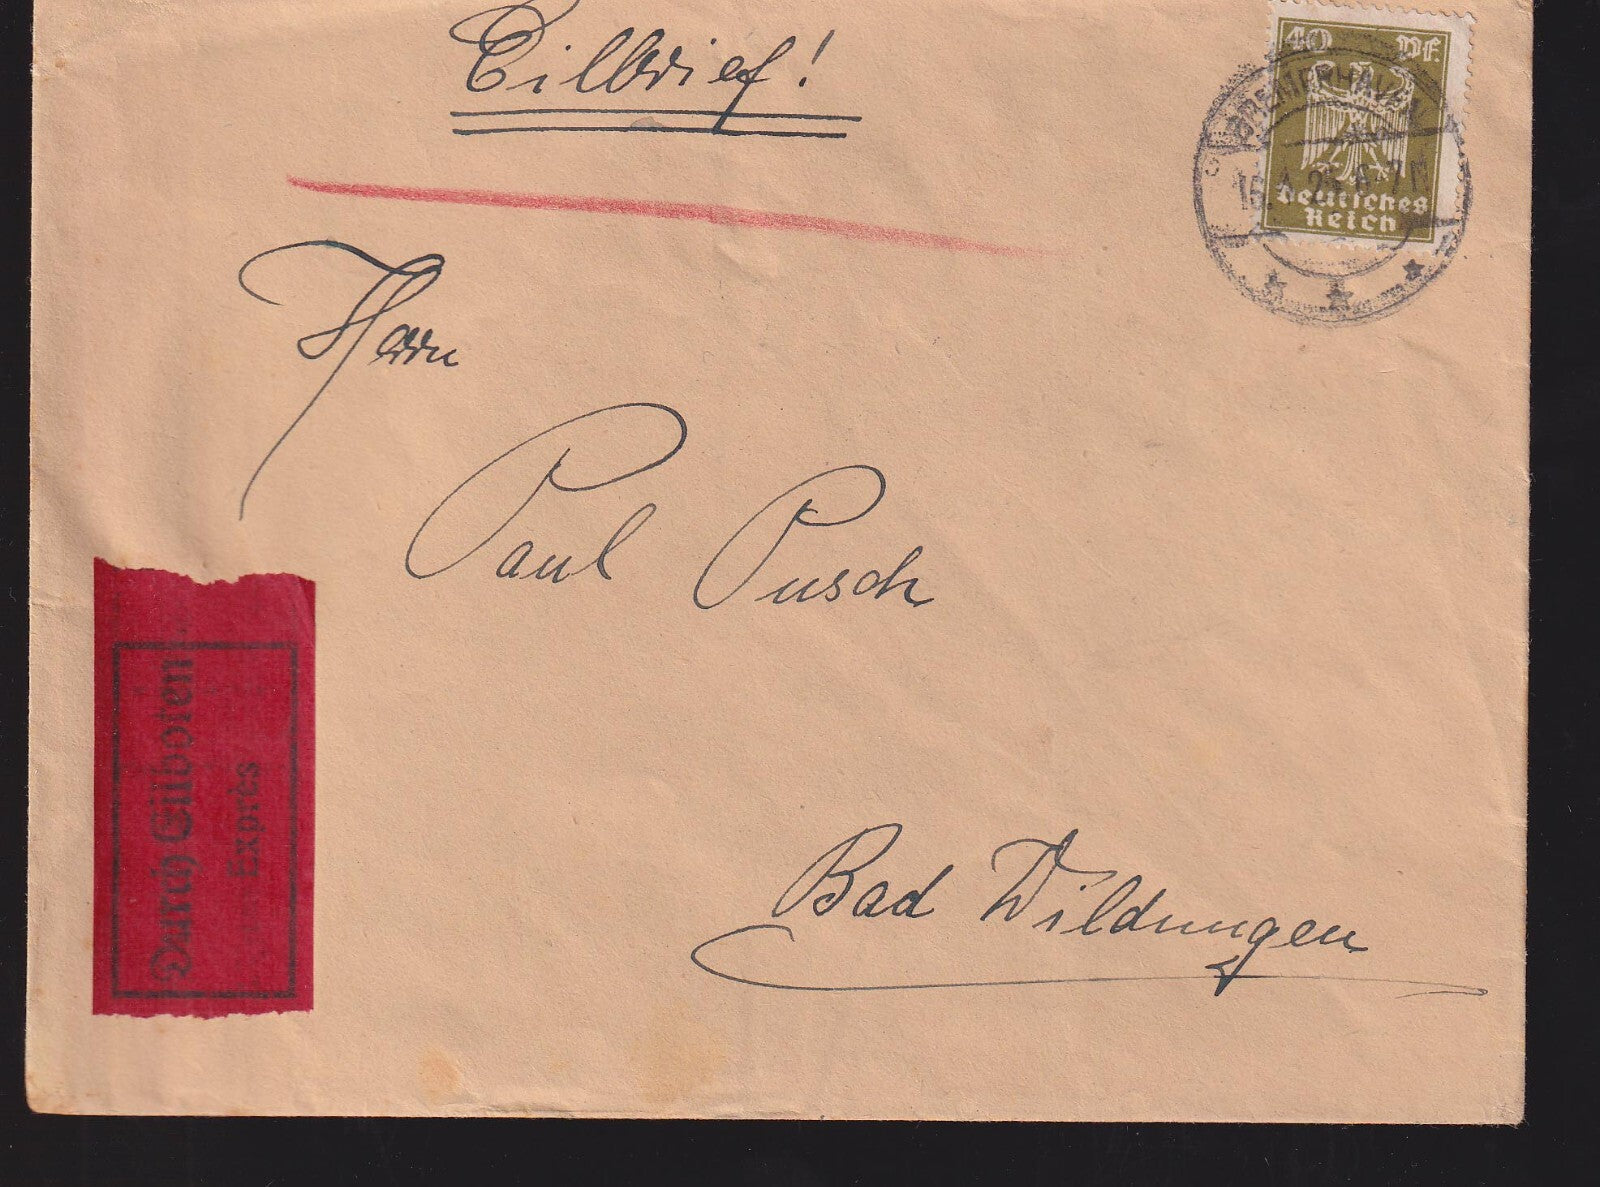 Eilbrief!
40 Pf.
BREMERHAVEN
Deutsches
Reich
Herrn
Paul Pusch
Durch Eilboten
Exprès
Bad Wildungen